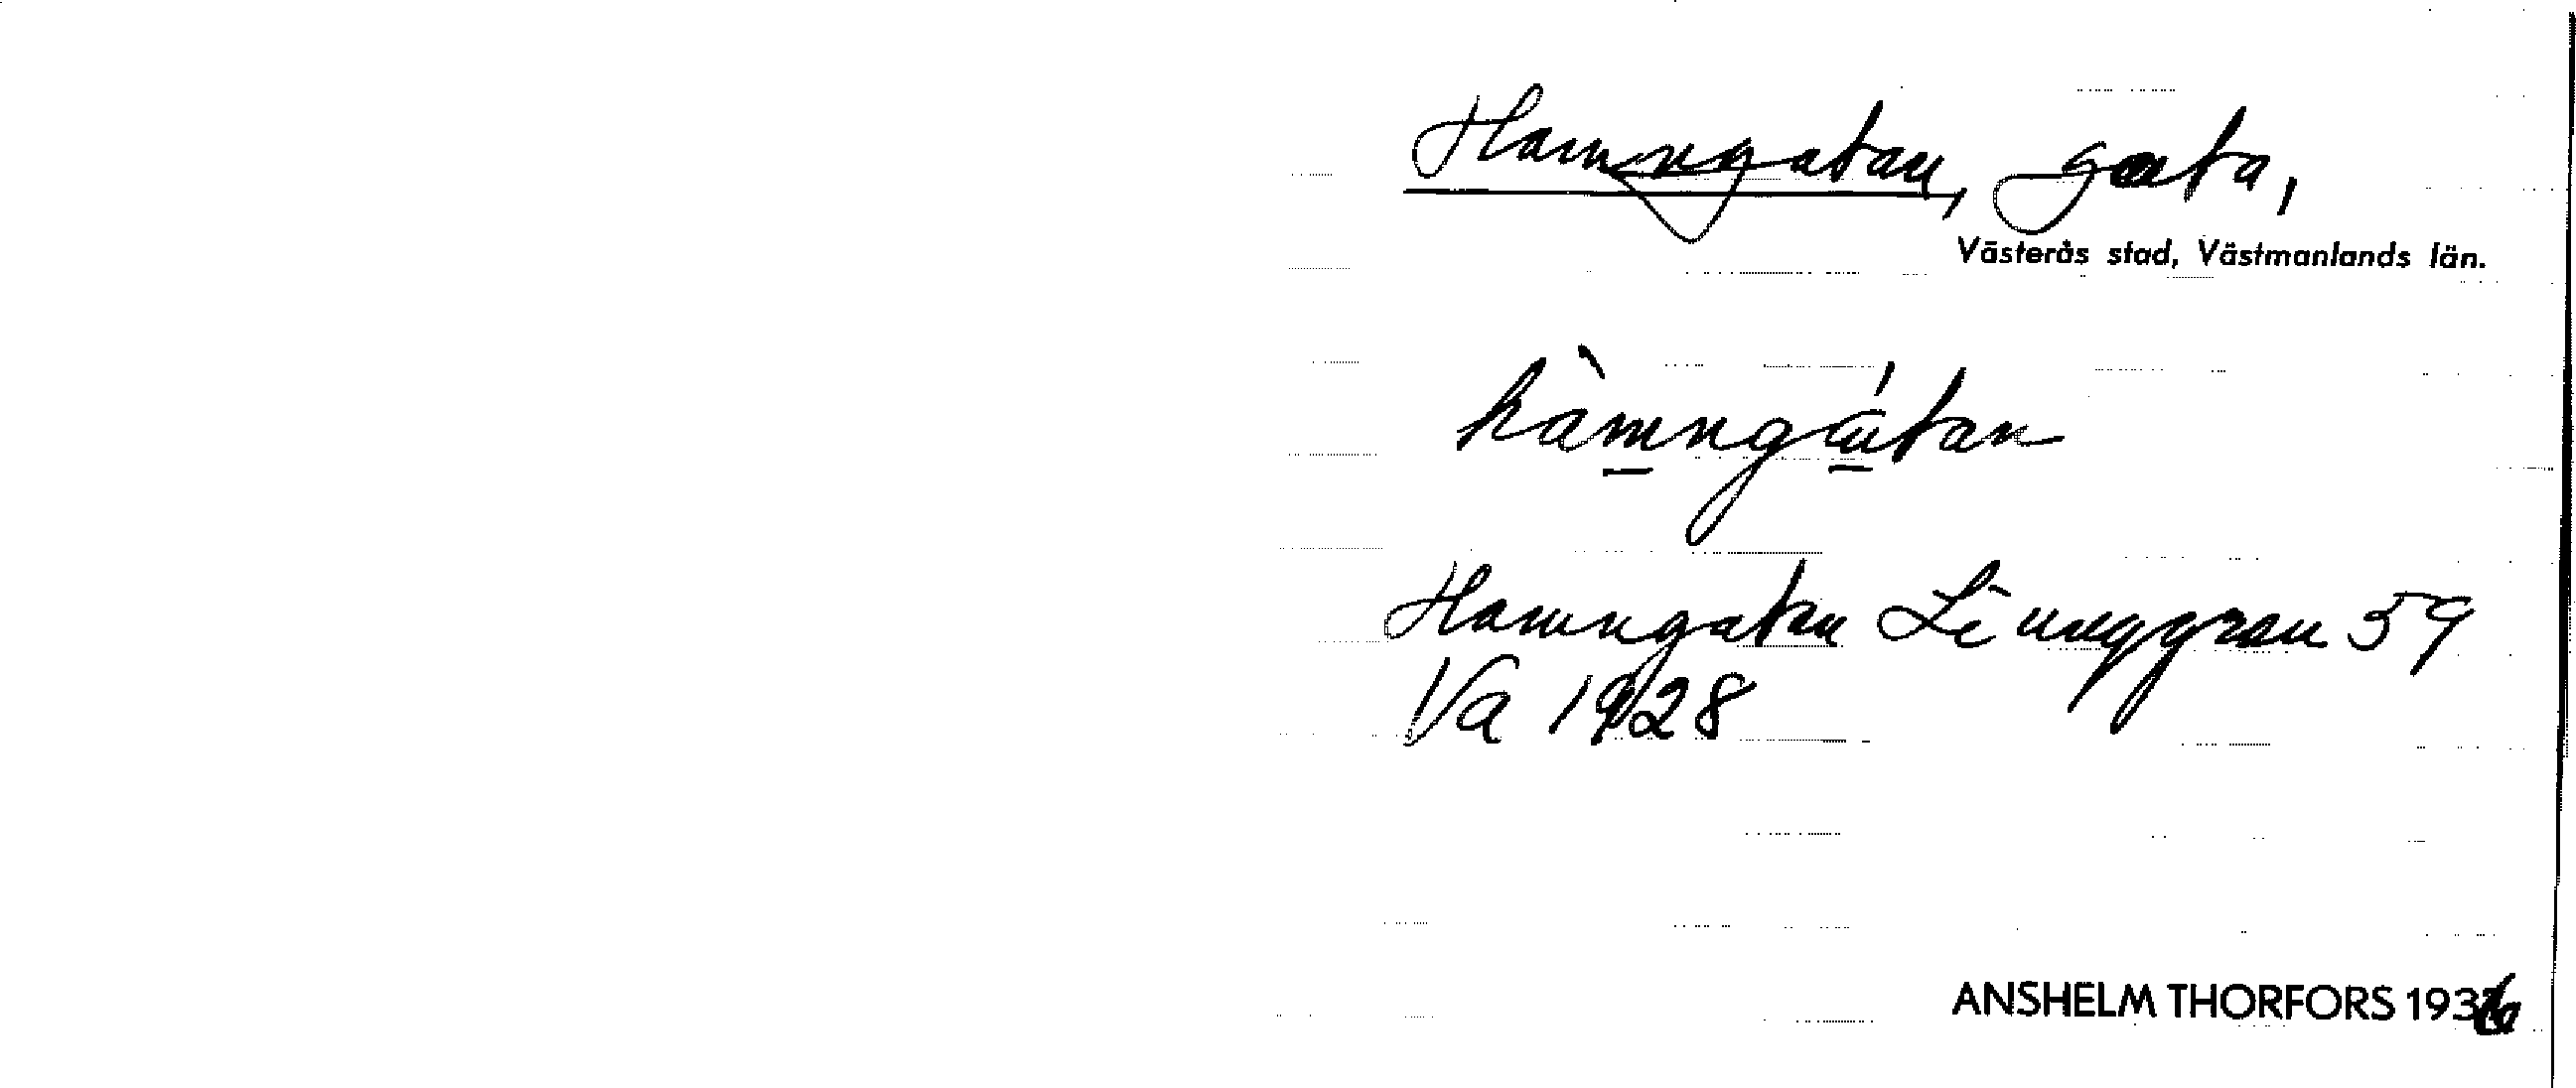 Hamngatan, gata,
Västerås stad, Västmanlands län.
hàmngátan
Hamngatan Ljunggren 59
Va 1928
ANSHELM THORFORS 1936